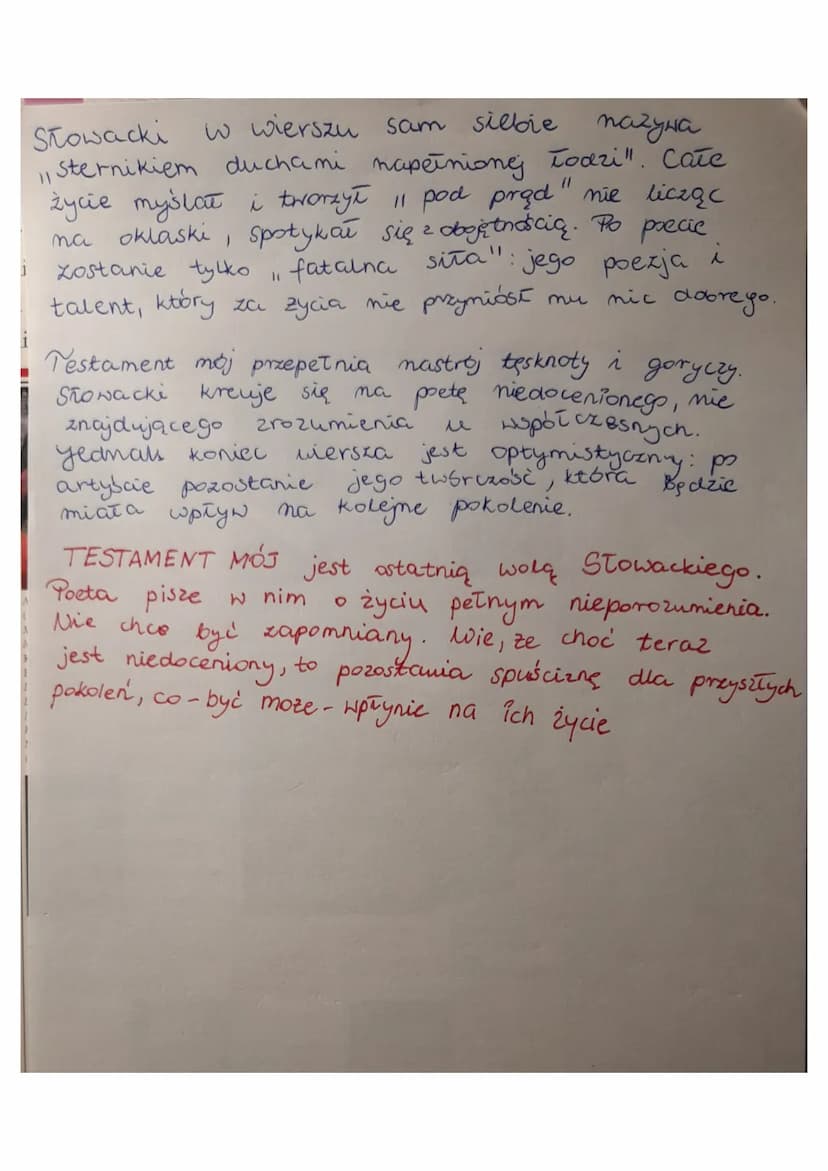 Słowacki w wierszu sam siebie nazywa
„sternikiem duchami napełnionej łodzi". Całe
życie myślał i tworzył „pod prąd" nie licząc
na oklaski, spotykał się z obojętnością. Po poecie
zostanie tylko „fatalna siła": jego poezja i
talent, który za życia nie przyniósł mu nic dobrego.
Testament mój przepełnia nastrój tęsknoty i goryczy.
Słowacki kreuje się na poetę niedocenionego, nie
znajdującego zrozumienia u współczesnych.
Jednak koniec wiersza jest optymistyczny: po
artyście pozostanie jego twórczość, która będzie
miała wpływ na kolejne pokolenie.
TESTAMENT MÓJ jest ostatnią wolą Słowackiego.
Poeta pisze w nim o życiu pełnym nieporozumienia.
Nie chce być zapomniany. Wie, że choć teraz
jest niedoceniony, to pozostawia spuściznę dla przyszłych
pokoleń, co - być może - wpłynie na ich życie